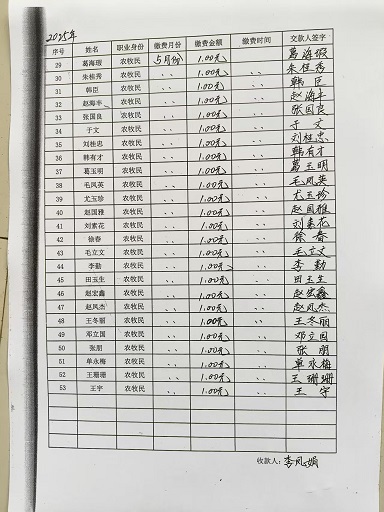 2025年
序号 姓名 职业身份 缴费月份 缴费金额 缴费时间 交款人签字
29 葛海瑕 农牧民 5月份 1.00元 葛海瑕
30 朱桂秀 农牧民 、、 1.00元 、、 朱桂秀
31 韩臣 农牧民 、、 1.00元 、、 韩臣
32 赵海丰 农牧民 、、 1.00元 、、 赵海丰
33 张国良 农牧民 、、 1.00元 、、 张国良
34 于文 农牧民 、、 1.00元 、、 于文
35 刘桂忠 农牧民 、、 1.00元 、、 刘桂忠
36 韩有才 农牧民 、、 1.00元 、、 韩有才
37 葛玉明 农牧民 、、 1.00元 、、 葛玉明
38 毛凤英 农牧民 、、 1.00元 、、 毛凤英
39 尤玉珍 农牧民 、、 1.00元 、、 尤玉珍
40 赵国雅 农牧民 、、 1.00元 、、 赵国雅
41 刘素花 农牧民 、、 1.00元 、、 刘素花
42 徐春 农牧民 、、 1.00元 、、 徐春
43 毛立文 农牧民 、、 1.00元 、、 毛立文
44 李勤 农牧民 、、 1.00元 、、 李勤
45 田玉生 农牧民 、、 1.00元 、、 田玉生
46 赵宏鑫 农牧民 、、 1.00元 、、 赵宏鑫
47 赵凤杰 农牧民 、、 1.00元 、、 赵凤杰
48 王冬丽 农牧民 、、 1.00元 、、 王冬丽
49 邓立国 农牧民 、、 1.00元 、、 邓立国
50 张朋 农牧民 、、 1.00元 、、 张朋
51 单永梅 农牧民 、、 1.00元 、、 单永梅
52 王珊珊 农牧民 、、 1.00元 、、 王珊珊
53 王宇 农牧民 、、 1.00元 、、 王宇
收款人：李凤娟